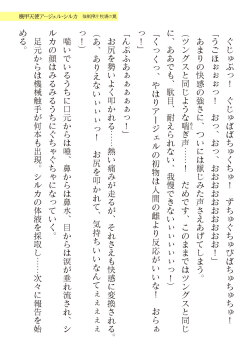 機甲天使アージェル・シルカ
ぐじゅぶっ! ぐじゅぱぱちゅくちゅ! ずちゅぐちゅびちゅばちゅちゅっ!
「うごほぉぉぉっ! おっ、おっ、おおおおおおおおおお!」
あまりの快感の強さに、ついには獣じみた声さえあげてしまう。
(ツングスと同じような喘ぎ声……! だめです、このままではツングスと同じに、ああでも、駄目、耐えられない、我慢できないぃぃぃぃっ!)
「くっくっ、やはりアージェルの初物は人間の雌より反応がいいな! おらぁっ!」
「んぶふあぁぁぁぁぁっ!」
お尻を勢いよく叩かれる……! 熱い痛みが走るが、それさえも快感に変換される。
(あ、ありえないぃぃぃっ! お尻を叩かれて、気持ちいいなんてぇぇぇぇぇっ!)
喘いでいるうちに口元からは唾、鼻からは鼻水、目からは涙が垂れ流され、シルカの顔はみるみるうちにぐちゃぐちゃになっていく。
足元からは機械触手が何本も出現。シルカの体液を採取し……次々に報告を始める。